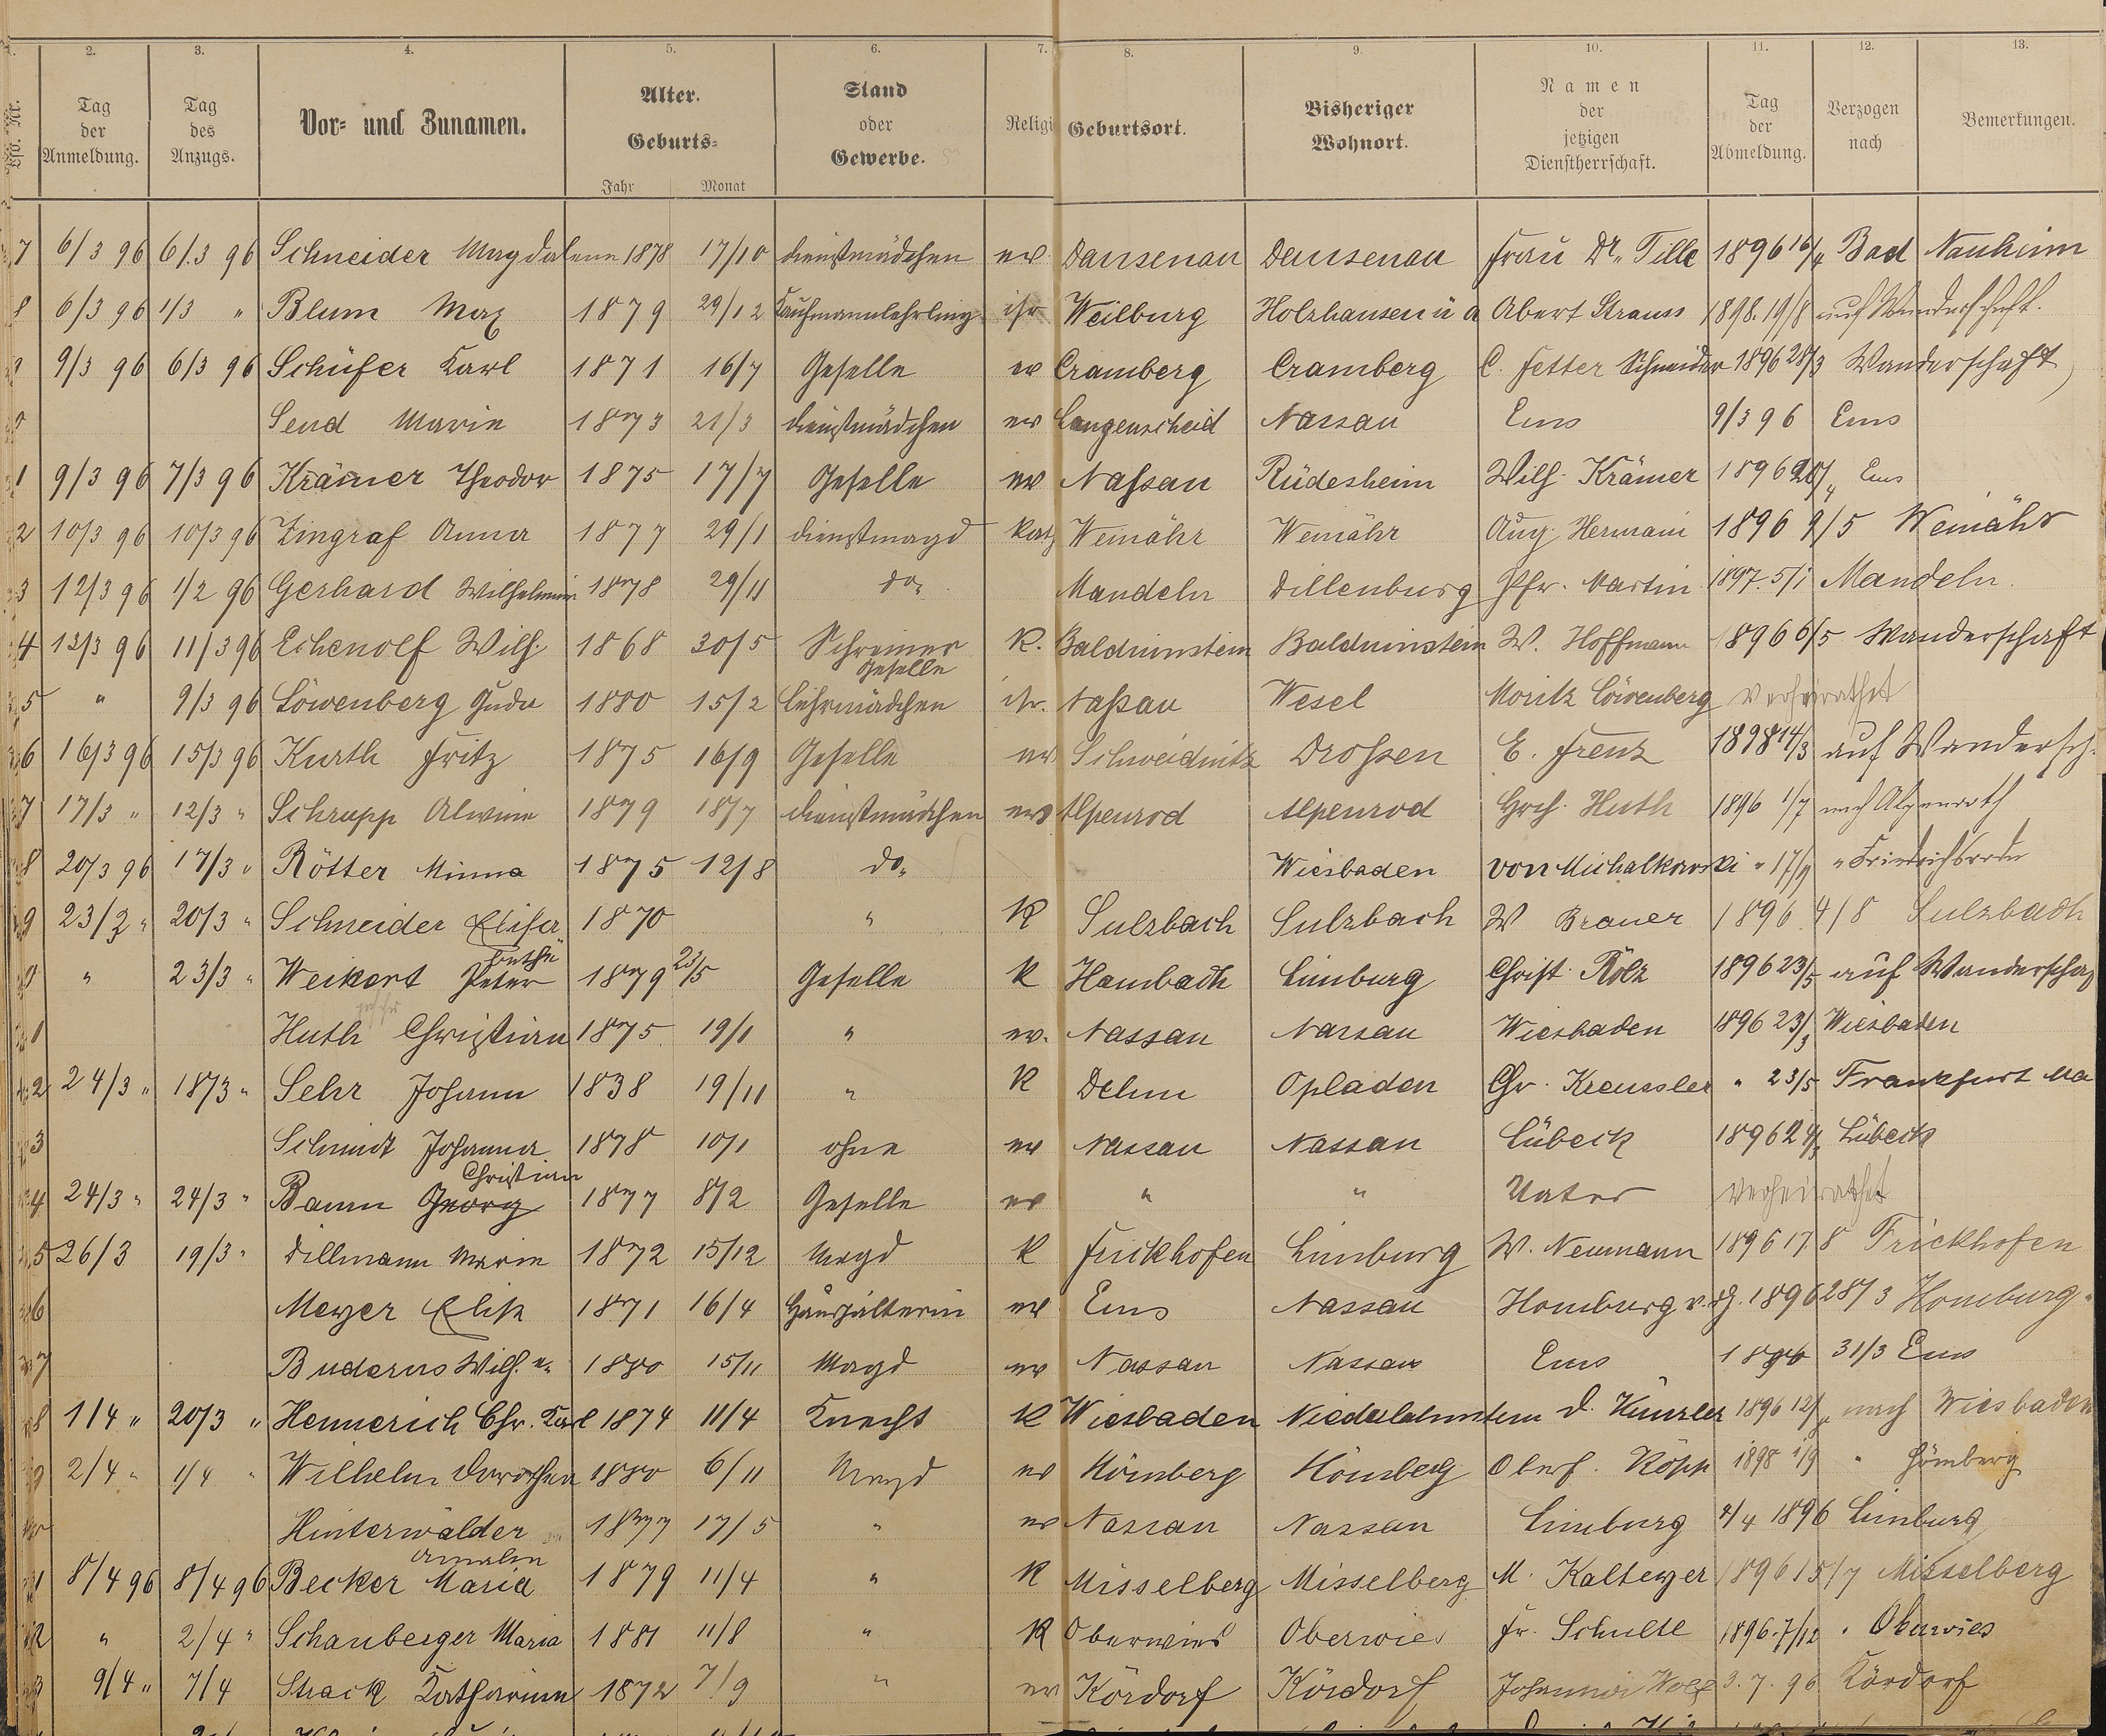 2. 3. 4. 5. 6. 7. 8. 9. 10. 11. 12. 13.
Lfd. Nr. Tag der Anmeldung. Tag des Anzugs. Vor- und Zunamen. Alter. Geburts- Jahr Monat Stand oder Gewerbe. Religi Geburtsort. Bisheriger Wohnort. Namen der jetzigen Dienstherrschaft. Tag der Abmeldung. Verzogen nach Bemerkungen.
7 6/3 96 6/3 96 Schneider Magdalena 1878 17/10 Dienstmädchen ev Dausenau Dausenau Frau Dr. Tille 1896 16/4 Bad Nauheim
8 6/3 96 1/3 " Blum Max 1879 29/12 Kaufmannlehrling isr Weilburg Holzhausen ü a Abert Strauss 1898. 19/8 auf Wanderschaft.
9 9/3 96 6/3 96 Schäfer Karl 1871 16/7 Geselle ev Cramberg Cramberg C. Fetter Schneider 1896 28/3 Wanderschaft
Send Marie 1873 21/3 Dienstmädchen ev Langenscheid Nassau Ems 9/3 96 Ems
1 9/3 96 7/3 96 Krämer Theodor 1875 17/7 Geselle ev Naßau Rüdesheim Wilh. Krämer 1896 20/4 Ems
2 10/3 96 10/3 96 Zingraf Anna 1877 29/1 Dienstmagd kath Weinähr Weinähr Aug. Hermani 1896 9/5 Weinähr
3 12/3 96 1/2 96 Gerhard Wilhelmine 1878 29/11 do. Mandeln Dillenburg Pfr. Martin 1897. 5/1 Mandeln.
4 13/3 96 11/3 96 Eschenolf Wilh. 1868 30/5 Schreiner Geselle K. Balduinstein Balduinstein W. Hoffmann 1896 6/5 Wanderschaft
5 " 9/3 96 Löwenberg 1880 15/2 Lehrmädchen isr. Naßau Wesel Moritz Löwenberg verheirathet
6 16/3 96 15/3 96 Kurth Fritz 1875 16/9 Geselle ev Schweidnitz Droßen E. Frenz 1898 14/3 auf Wandersch.
7 17/3 " 12/3 " Schrupp Alwine 1879 18/7 Dienstmädchen ev Alpenrod Alpenrod Huth 1896 1/7 nach Alpenroth
8 20/3 96 17/3 " Rötter Minna 1875 12/8 do. Wiesbaden von Michalkowski " 17/9 "
9 23/3 " 20/3 " Schneider Elisabetha 1870 " K Sulzbach Sulzbach W Brauer 1896 4/8 Sulzbach
" 23/3 " Weikert Peter 1879 23/5 Geselle K Hambach Limburg Christ. Rölz 1896 23/5 auf Wanderschaf
1 Huth Christian 1875 19/1 " ev. Nassau Nassau Wiesbaden 1896 23/3 Wiesbaden
2 24/3 " 18/3 " Sehr Johann 1838 19/11 " K Dehrn Opladen Chr. Kreussler " 23/5 Frankfurt Ma
3 Schmidt Johanna 1878 10/1 ohne ev Nassau Nassau Lübeck 1896 24/3 Lübeck
4 24/3 " 24/3 " Baum Georg Christian 1877 8/2 Geselle ev " " Vater verheirathet
5 26/3 19/3 " Dillmann Marie 1872 15/12 Magd K Frickhofen Limburg W. Neumann 1896 17 8 Frickhofen
6 Meyer Elise 1871 16/4 Haushälterin ev Ems Nassau Homburg v. d H. 1896 28/3 Homburg
7 Buderus Wilh. 1880 15/11 Magd ev Nassau Nassau Ems 1896 31/3 Ems
8 1/4 " 20/3 " Hennerich Chr. Karl 1874 11/4 Knecht K Wiesbaden Niederlahnstein D. Künzler 1896 12/4 nach Wiesbaden
9 2/4 " 1/4 " Wilhelm Dorothea 1880 6/11 Magd ev Hömberg Hömberg Köpp 1898 1/9 " Hömberg
Hinterwälder Amalia 1877 17/5 " ev Nassau Nassau Limburg 4/4 1896 Limburg
1 8/4 96 8/4 96 Becker Maria 1879 11/4 " K Misselberg Misselberg M. Kalteyer 1896 15/7 Misselberg
2 " 2/4 " Schauberger Maria 1881 11/8 " K Oberwies Oberwies Fr. Schulte 1896. 7/12 " Oberwies
3 9/4 " 7/4 Strack Katharina 1872 7/9 " ev Kördorf Kördorf 3. 7. 96 Kördorf